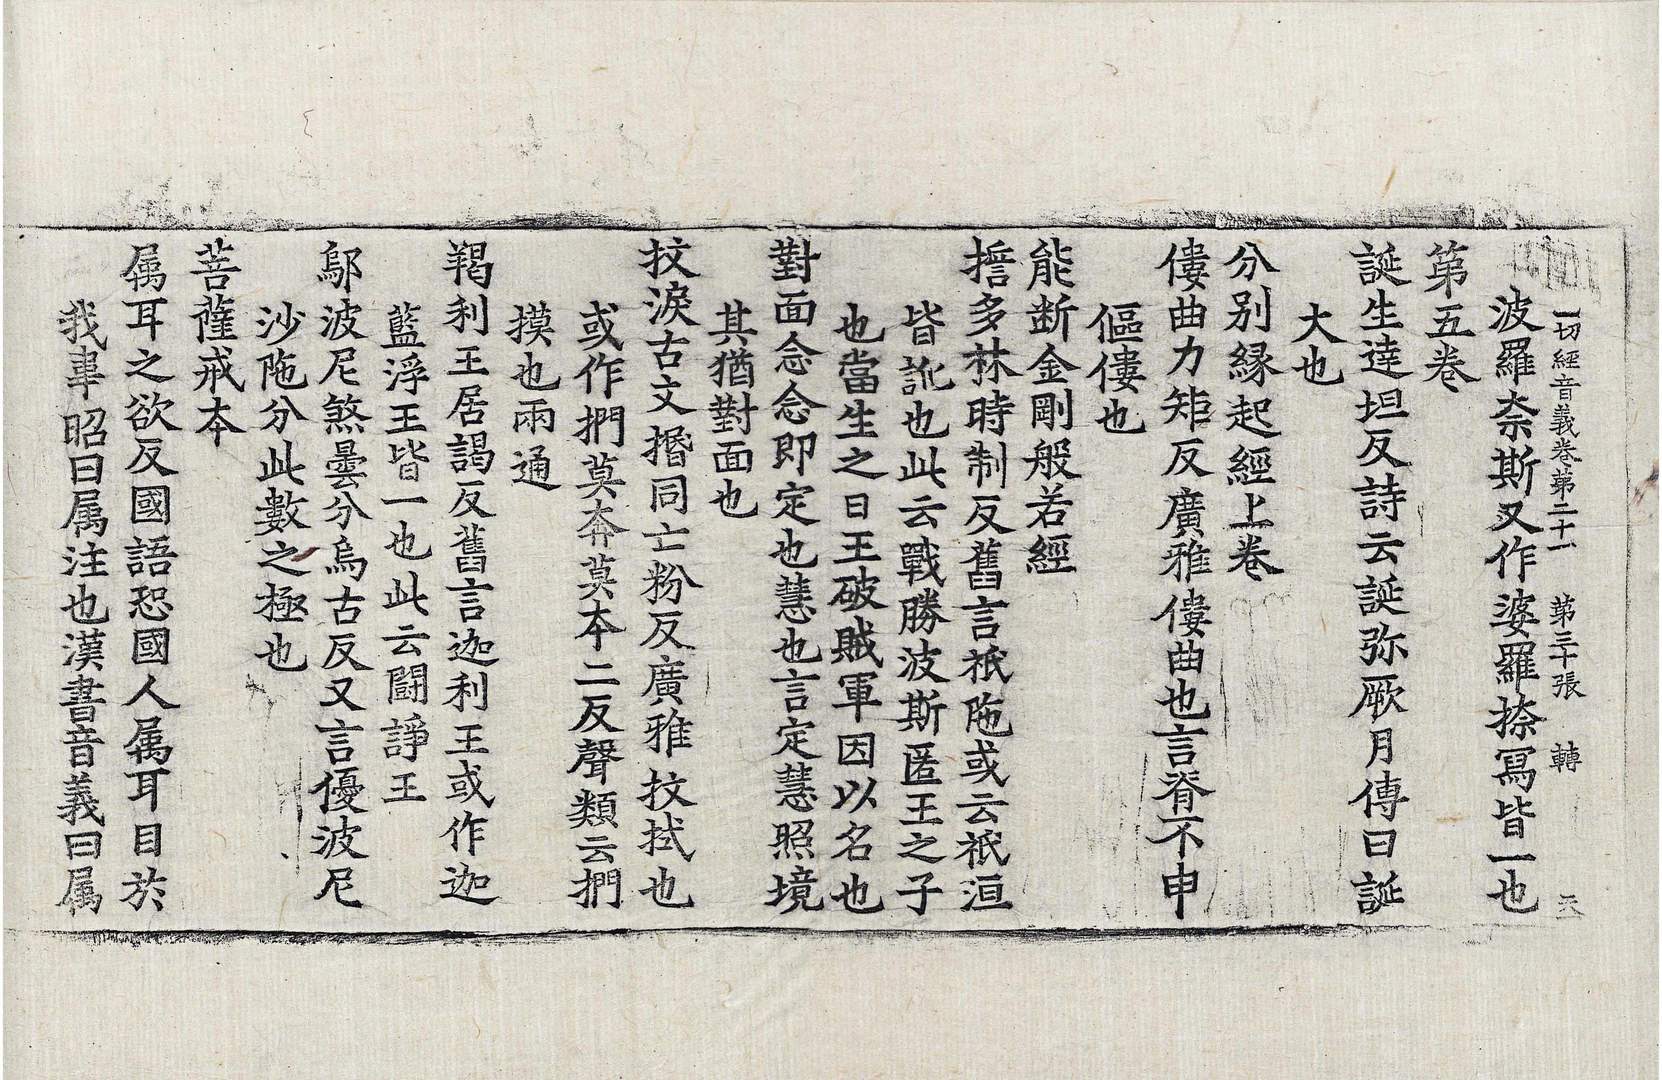 一切經音義卷第二十一 第三十張 轉
波羅柰斯又作婆羅捺寫皆一也
第五卷
誕生達坦反詩云誕弥厥月傳曰誕
大也
分別緣起經上卷
僂曲力矩反廣雅僂曲也言脊不申
傴僂也
能断金剛般若經
誓多林時制反舊言祇陁或云祇洹
皆訛也此云戰勝波斯匿王之子
也當生之日王破賊軍因以名也
對面念念即定也慧也言定慧照境
其猶對面也
抆淚古文揗同亡粉反廣雅抆拭也
或作捫莫奔莫本二反聲類云捫
摸也兩通
羯利王居謁反舊言迦利王或作迦
藍浮王皆一也此云鬪諍王
鄔波尼煞曇分烏古反又言優波尼
沙陁分此數之極也
菩薩戒本
属耳之欲反國語恐國人属耳目於
我韋昭曰属注也漢書音義曰属